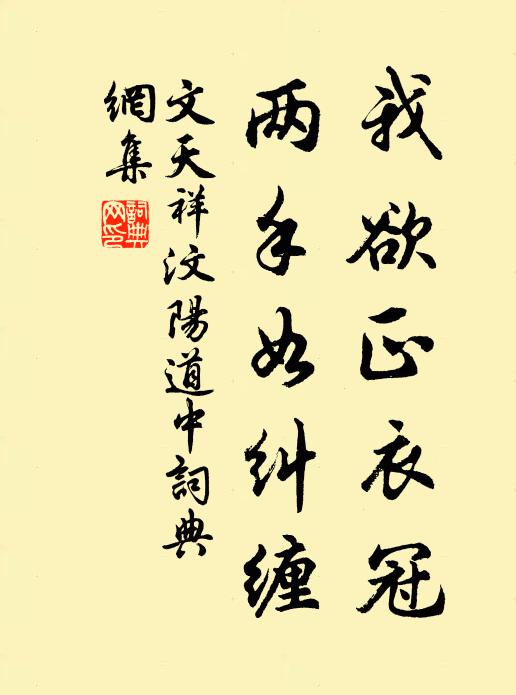 我欲正衣冠
两手如纠缠
文天祥汶陽道中詞典
網集
詞典网印